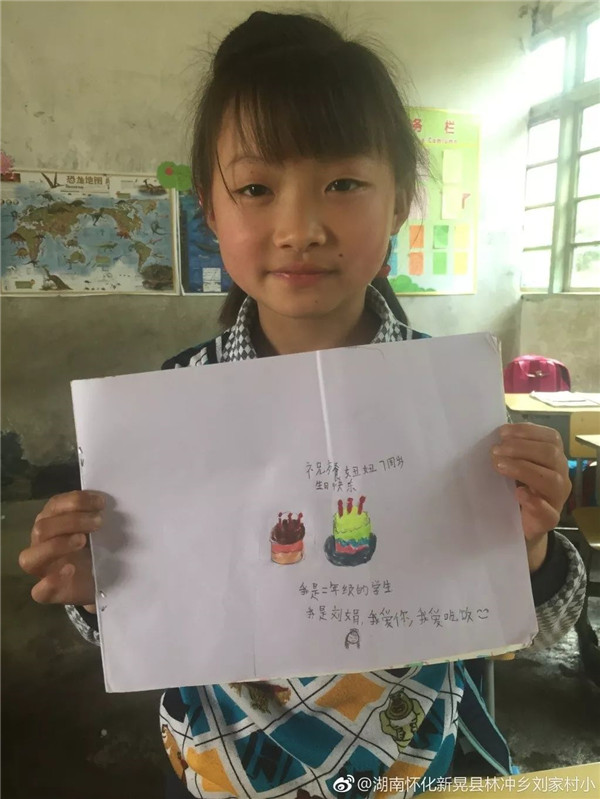 恐龙地图
务栏
祝 妞妞7周岁
生日快乐
我是二年级的学生
我是刘娟,我爱你,我爱吃饭
@湖南怀化新晃县林冲乡刘家村小